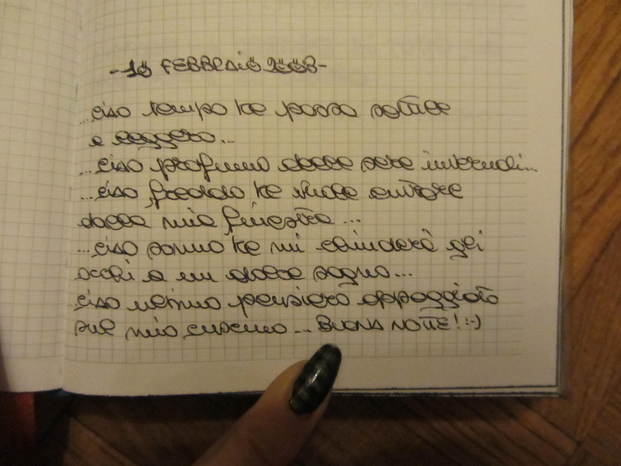 -10 FEBBRAIO 2008-
...ciao tempo ke passa sottile
e leggero...
...ciao profumo delle sere invernali...
...ciao freddo ke vuole entrare
dalla mia finestra...
...ciao sonno ke mi chiuderà gli
occhi e un dolce sogno...
ciao ultimo pensiero appoggiato
sul mio cuscino... BUONA NOTTE! :-)